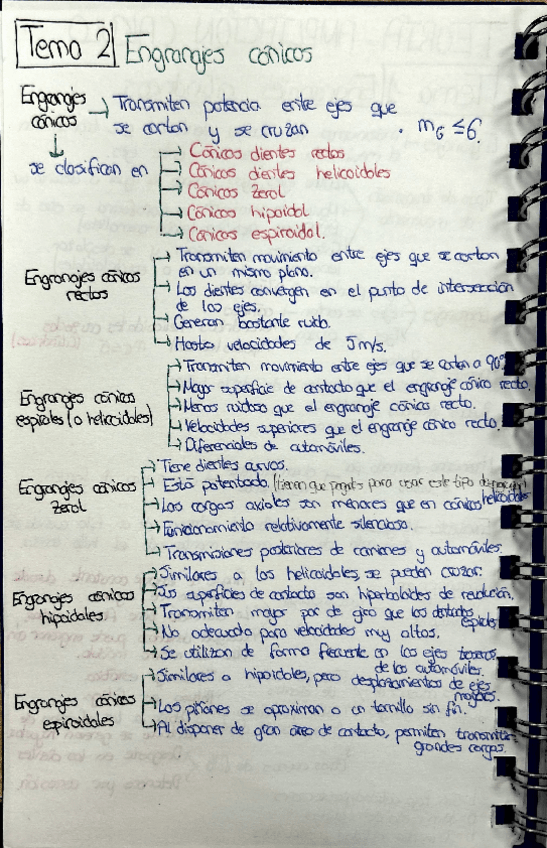 Tema 2 Engranajes cónicos
Engranajes cónicos → Transmiten potencia entre ejes que
se cortan y se cruzan. mG ≤ 6.
se clasifican en
→ Cónicos dientes rectos
→ Cónicos dientes helicoidales
→ Cónicos Zerol
→ Cónicos hipoidal
→ Cónicos espiroidal.
Engranajes cónicos rectos
→ Transmiten movimiento entre ejes que se cortan
en un mismo plano.
→ Los dientes convergen en el punto de intersección
de los ejes.
→ Generan bastante ruido.
→ Hasta velocidades de 5m/s.
Engranajes cónicos espirales (o helicoidales)
→ Transmiten movimiento entre ejes que se cortan a 90º
→ Mayor superficie de contacto que el engranaje cónico recto.
→ Menos ruidoso que el engranaje cónico recto.
→ Velocidades superiores que el engranaje cónico recto.
→ Diferenciales de automóviles.
Engranajes cónicos Zerol
→ Tiene dientes curvos.
→ Está patentado (tienen que pagar para usar este tipo
→ Las cargas axiales son menores que en cónicos helicoidales
→ Funcionamiento relativamente silencioso.
→ Transmisiones posteriores de camiones y automóviles.
Engranajes cónicos hipoidales
→ Similares a los helicoidales, se pueden cruzar.
→ Sus superficies de contacto son hiperboloides de revolución.
→ Transmiten mayor par de giro que los dentados
→ No adecuado para velocidades muy altas.
→ Se utilizan de forma frecuente en los ejes traseros
de los automóviles.
Engranajes cónicos espiroidales
→ Similares a hipoidales, pero desplazamientos de ejes
mayores.
→ Los piñones se aproximan a un tornillo sin fin.
→ Al disponer de gran área de contacto, permiten transmitir
grandes cargas.